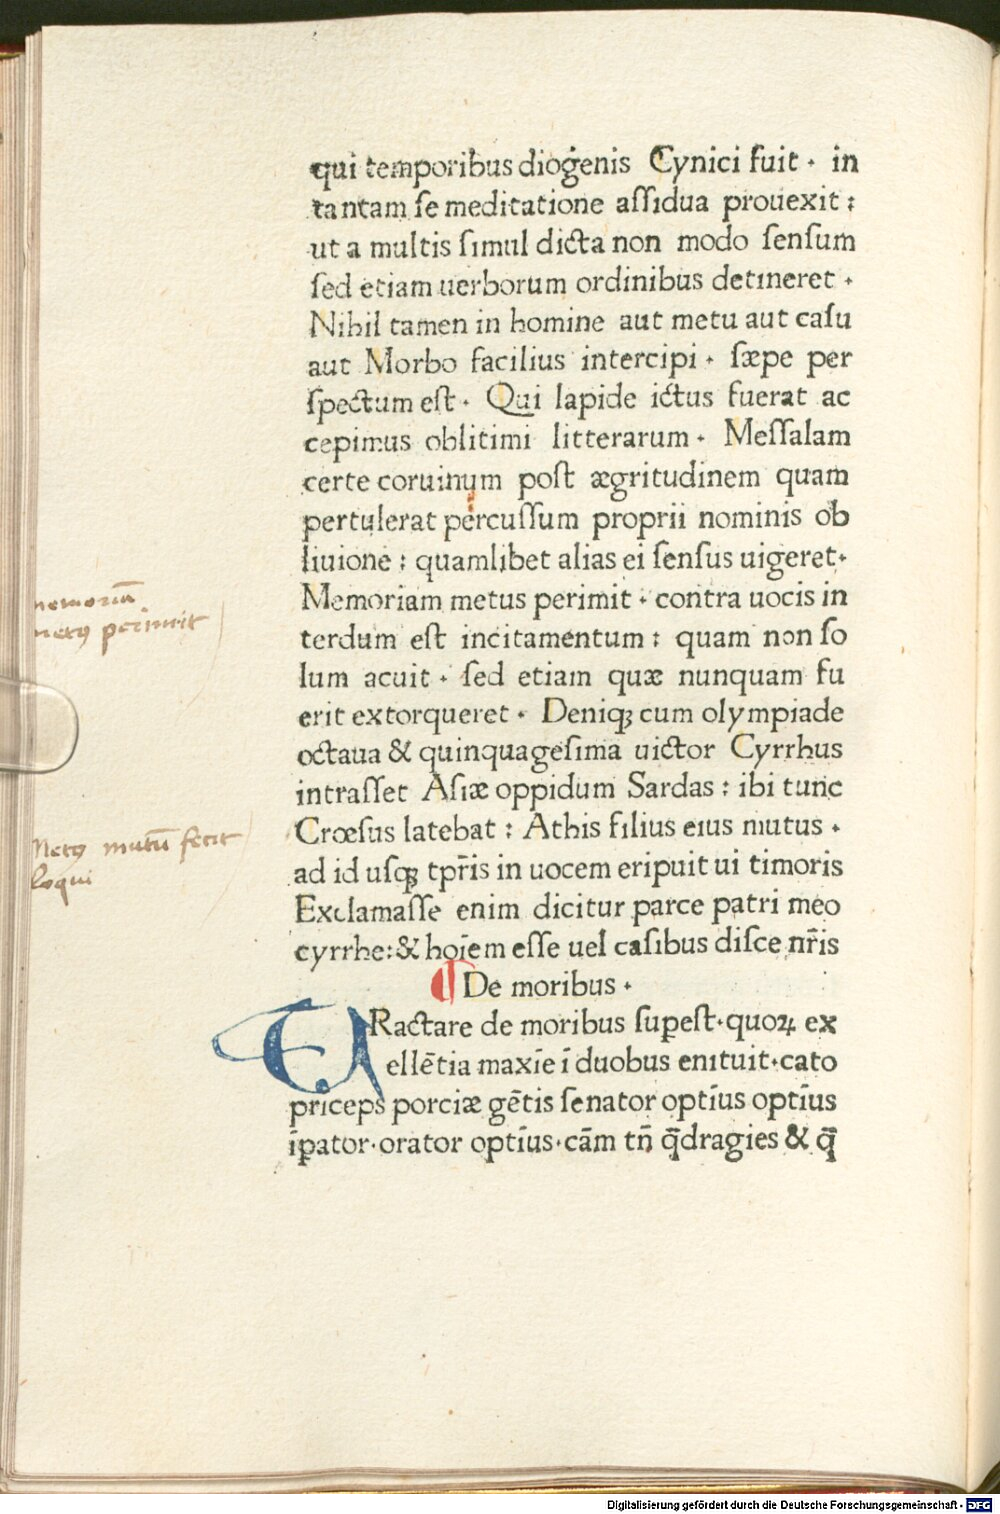 qui temporibus diogenis Cynici fuit · in
tantam se meditatione aſſidua prouexit :
ut a multis ſimul dicta non modo ſenſum
ſed etiam uerborum ordinibus detineret ·
Nihil tamen in homine aut metu aut caſu
aut Morbo facilius intercipi · ſæpe per
ſpectum eſt · Qui lapide ictus fuerat ac
cepimus oblitimi litterarum · Meſſalam
certe coruinum poſt ægritudinem quam
pertulerat percuſſum proprii nominis ob
liuione : quamlibet alias ei ſenſus uigeret·
Memoriam metus perimit · contra uocis in
terdum eſt incitamentum : quam non ſo
lum acuit · ſed etiam quæ nunquam fu
erit extorqueret · Deniqꝫ cum olympiade
octaua & quinquageſima uictor Cyrrhus
intraſſet Aſiæ oppidum Sardas : ibi tunc
Crœſus latebat : Athis filius eius mutus ·
ad id uſqꝫ tpr̄is in uocem eripuit ui timoris
Exclamaſſe enim dicitur parce patri meo
cyrrhe:& hoīem eſſe uel caſibus diſce nr̄is
De moribus ·
TRactare de moribus ſupeſt·quoꝝ ex
ellētia maxīe ī duobus enituit·cato
priceps porciæ gētis ſenator optīus optīus
īpator·orator optīus·cām tn̄ q̄dragies & q̄
memoriā
metꝰ perimit
Metꝰ mutū fecit
loqui